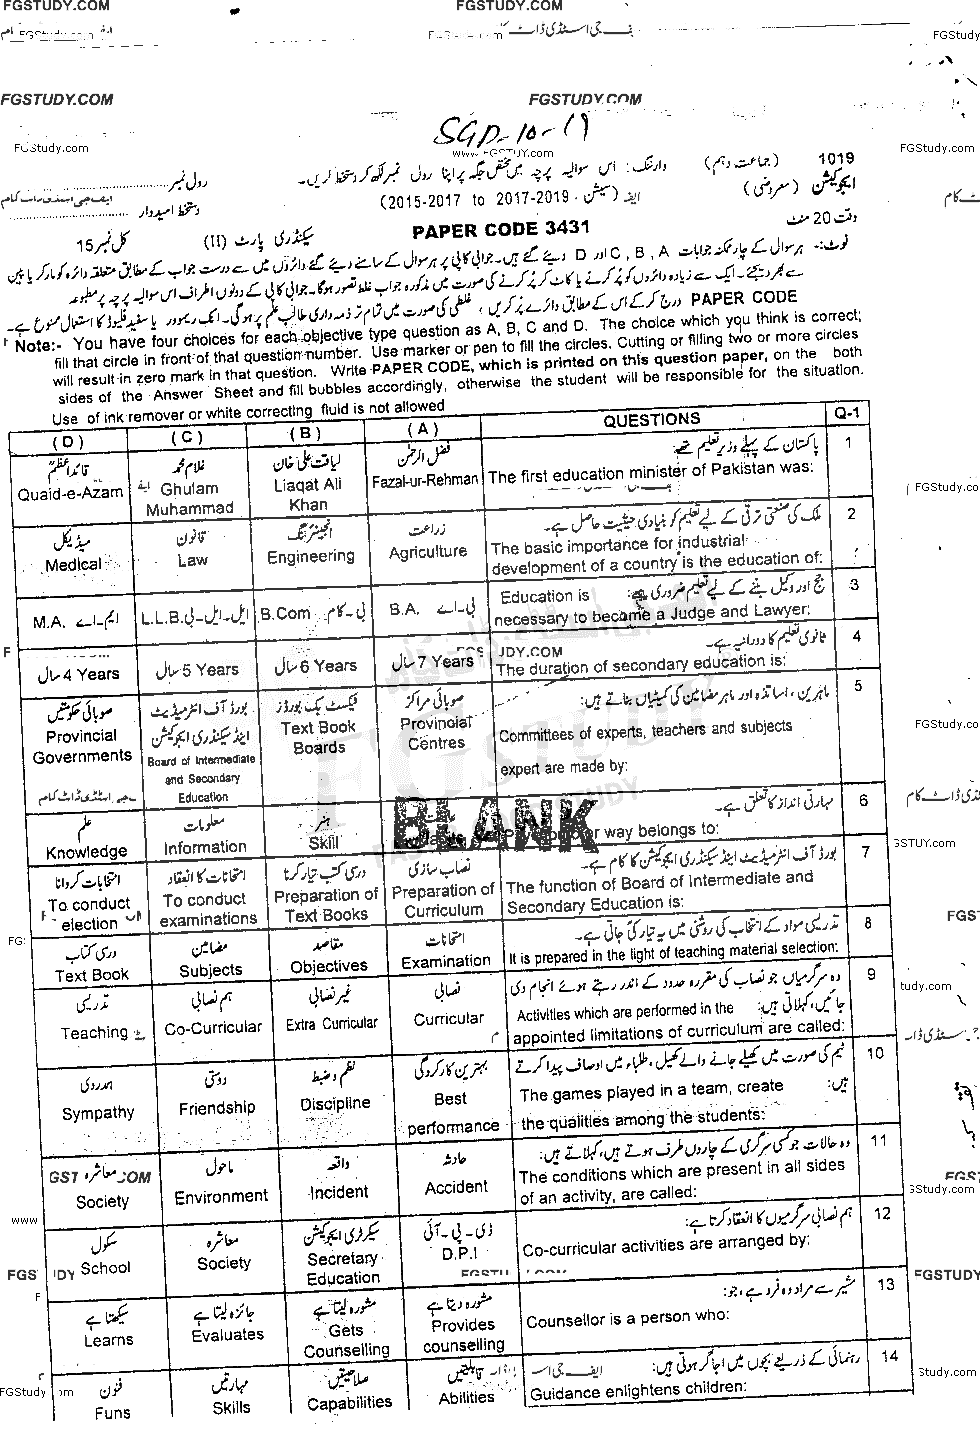 FGSTUDY.COM FGSTUDY.COM
FGStudy.com ایف جی اسٹڈی ڈاٹ کام FGStudy
FGSTUDY.COM FGSTUDY.COM
SGD-10-19
FGStudy.com www.FGSTUDY.com FGStudy.com
1019 (جماعت دہم) وارننگ: اس سوالیہ پرچہ میں مختص جگہ پر اپنا رول نمبر لکھ کر دستخط کریں۔ رول نمبر
ایجوکیشن (معروضی) (سیشن 2017-2019 to 2015-2017) دستخط امیدوار
وقت 20 منٹ PAPER CODE 3431 سیکنڈری پارٹ (II) کل نمبر 15
نوٹ:- ہر سوال کے چار ممکنہ جوابات A , B , C اور D دیے گئے ہیں۔ جوابی کاپی پر ہر سوال کے سامنے دیے گئے دائروں میں سے درست جواب کے مطابق متعلقہ دائرہ کو مارکر یا پین
سے بھر دیجئے۔ ایک سے زیادہ دائروں کو پُر کرنے یا کاٹ کر پُر کرنے کی صورت میں مذکورہ جواب غلط تصور ہوگا۔ جوابی کاپی کے دونوں اطراف اس سوالیہ پرچہ پر مطبوعہ
PAPER CODE درج کر کے اس کے مطابق دائرے پُر کریں، غلطی کی صورت میں تمام تر ذمہ داری طالب علم پر ہوگی۔ انک ریموور یا سفید فلیوڈ کا استعمال ممنوع ہے۔
Note:- You have four choices for each objective type question as A, B, C and D. The choice which you think is correct;
fill that circle in front of that question number. Use marker or pen to fill the circles. Cutting or filling two or more circles
will result in zero mark in that question. Write PAPER CODE, which is printed on this question paper, on the both
sides of the Answer Sheet and fill bubbles accordingly, otherwise the student will be responsible for the situation.
Use of ink remover or white correcting fluid is not allowed
(D) (C) (B) (A) QUESTIONS Q-1
قائداعظم غلام محمد لیاقت علی خان فضل الرحمن پاکستان کے پہلے وزیر تعلیم تھے: 1
Quaid-e-Azam Ghulam Muhammad Liaqat Ali Khan Fazal-ur-Rehman The first education minister of Pakistan was:
میڈیکل قانون انجینئرنگ زراعت ملک کی صنعتی ترقی کے لیے تعلیم کو بنیادی حیثیت حاصل ہے۔ 2
Medical Law Engineering Agriculture The basic importance for industrial
development of a country is the education of:
M.A. ایم-اے L.L.B ایل-ایل-بی B.Com بی-کام B.A. بی-اے Education is جج اور وکیل بننے کے لیے تعلیم ضروری ہے: 3
necessary to become a Judge and Lawyer:
4 Years سال 5 Years سال 6 Years سال 7 Years سال ثانوی تعلیم کا دورانیہ ہے۔ 4
The duration of secondary education is:
صوبائی حکومتیں بورڈ آف انٹرمیڈیٹ اینڈ سیکنڈری ایجوکیشن ٹیکسٹ بک بورڈز صوبائی مراکز ماہرین، اساتذہ اور ماہر مضامین کی کمیٹیاں بناتے ہیں: 5
Provincial Governments Board of Intermediate and Secondary Education Text Book Boards Provincial Centres Committees of experts, teachers and subjects
expert are made by:
علم معلومات ہنر مہارتی انداز کا تعلق ہے۔ 6
Knowledge Information Skill BLANK way belongs to:
انتخابات کروانا امتحانات کا انعقاد درسی کتب تیار کرنا نصاب سازی بورڈ آف انٹرمیڈیٹ اینڈ سیکنڈری ایجوکیشن کا کام ہے۔ 7
To conduct election To conduct examinations Preparation of Text Books Preparation of Curriculum The function of Board of Intermediate and
Secondary Education is:
درسی کتاب مضامین مقاصد امتحانات تدریسی مواد کے انتخاب کی روشنی میں یہ تیار کی جاتی ہے۔ 8
Text Book Subjects Objectives Examination It is prepared in the light of teaching material selection:
تدریسی ہم نصابی غیر نصابی نصابی وہ سرگرمیاں جو نصاب کی مقررہ حدود کے اندر رہتے ہوئے انجام دی 9
جائیں، کہلاتی ہیں:
Teaching Co-Curricular Extra Curricular Curricular Activities which are performed in the
appointed limitations of curriculum are called:
ہمدردی دوستی نظم و ضبط بہترین کارکردگی ٹیم کی صورت میں کھیلے جانے والے کھیل، طلباء میں اوصاف پیدا کرتے ہیں: 10
Sympathy Friendship Discipline Best performance The games played in a team, create
the qualities among the students:
معاشرہ ماحول واقعہ حادثہ وہ حالات جو کسی سرگرمی کے چاروں طرف ہوتے ہیں، کہلاتے ہیں: 11
Society Environment Incident Accident The conditions which are present in all sides
of an activity, are called:
سکول معاشرہ سیکرٹری ایجوکیشن ڈی-پی-آئی ہم نصابی سرگرمیوں کا انعقاد کرتا ہے: 12
School Society Secretary Education D.P.I Co-curricular activities are arranged by:
سیکھتا ہے جائزہ لیتا ہے مشورہ لیتا ہے مشورہ دیتا ہے مشیر سے مراد وہ فرد ہے، جو: 13
Learns Evaluates Gets Counselling Provides counselling Counsellor is a person who:
فنون مہارتیں صلاحیتیں قابلیتیں رہنمائی کے ذریعے بچوں میں اجاگر ہوتی ہیں: 14
Funs Skills Capabilities Abilities Guidance enlightens children: